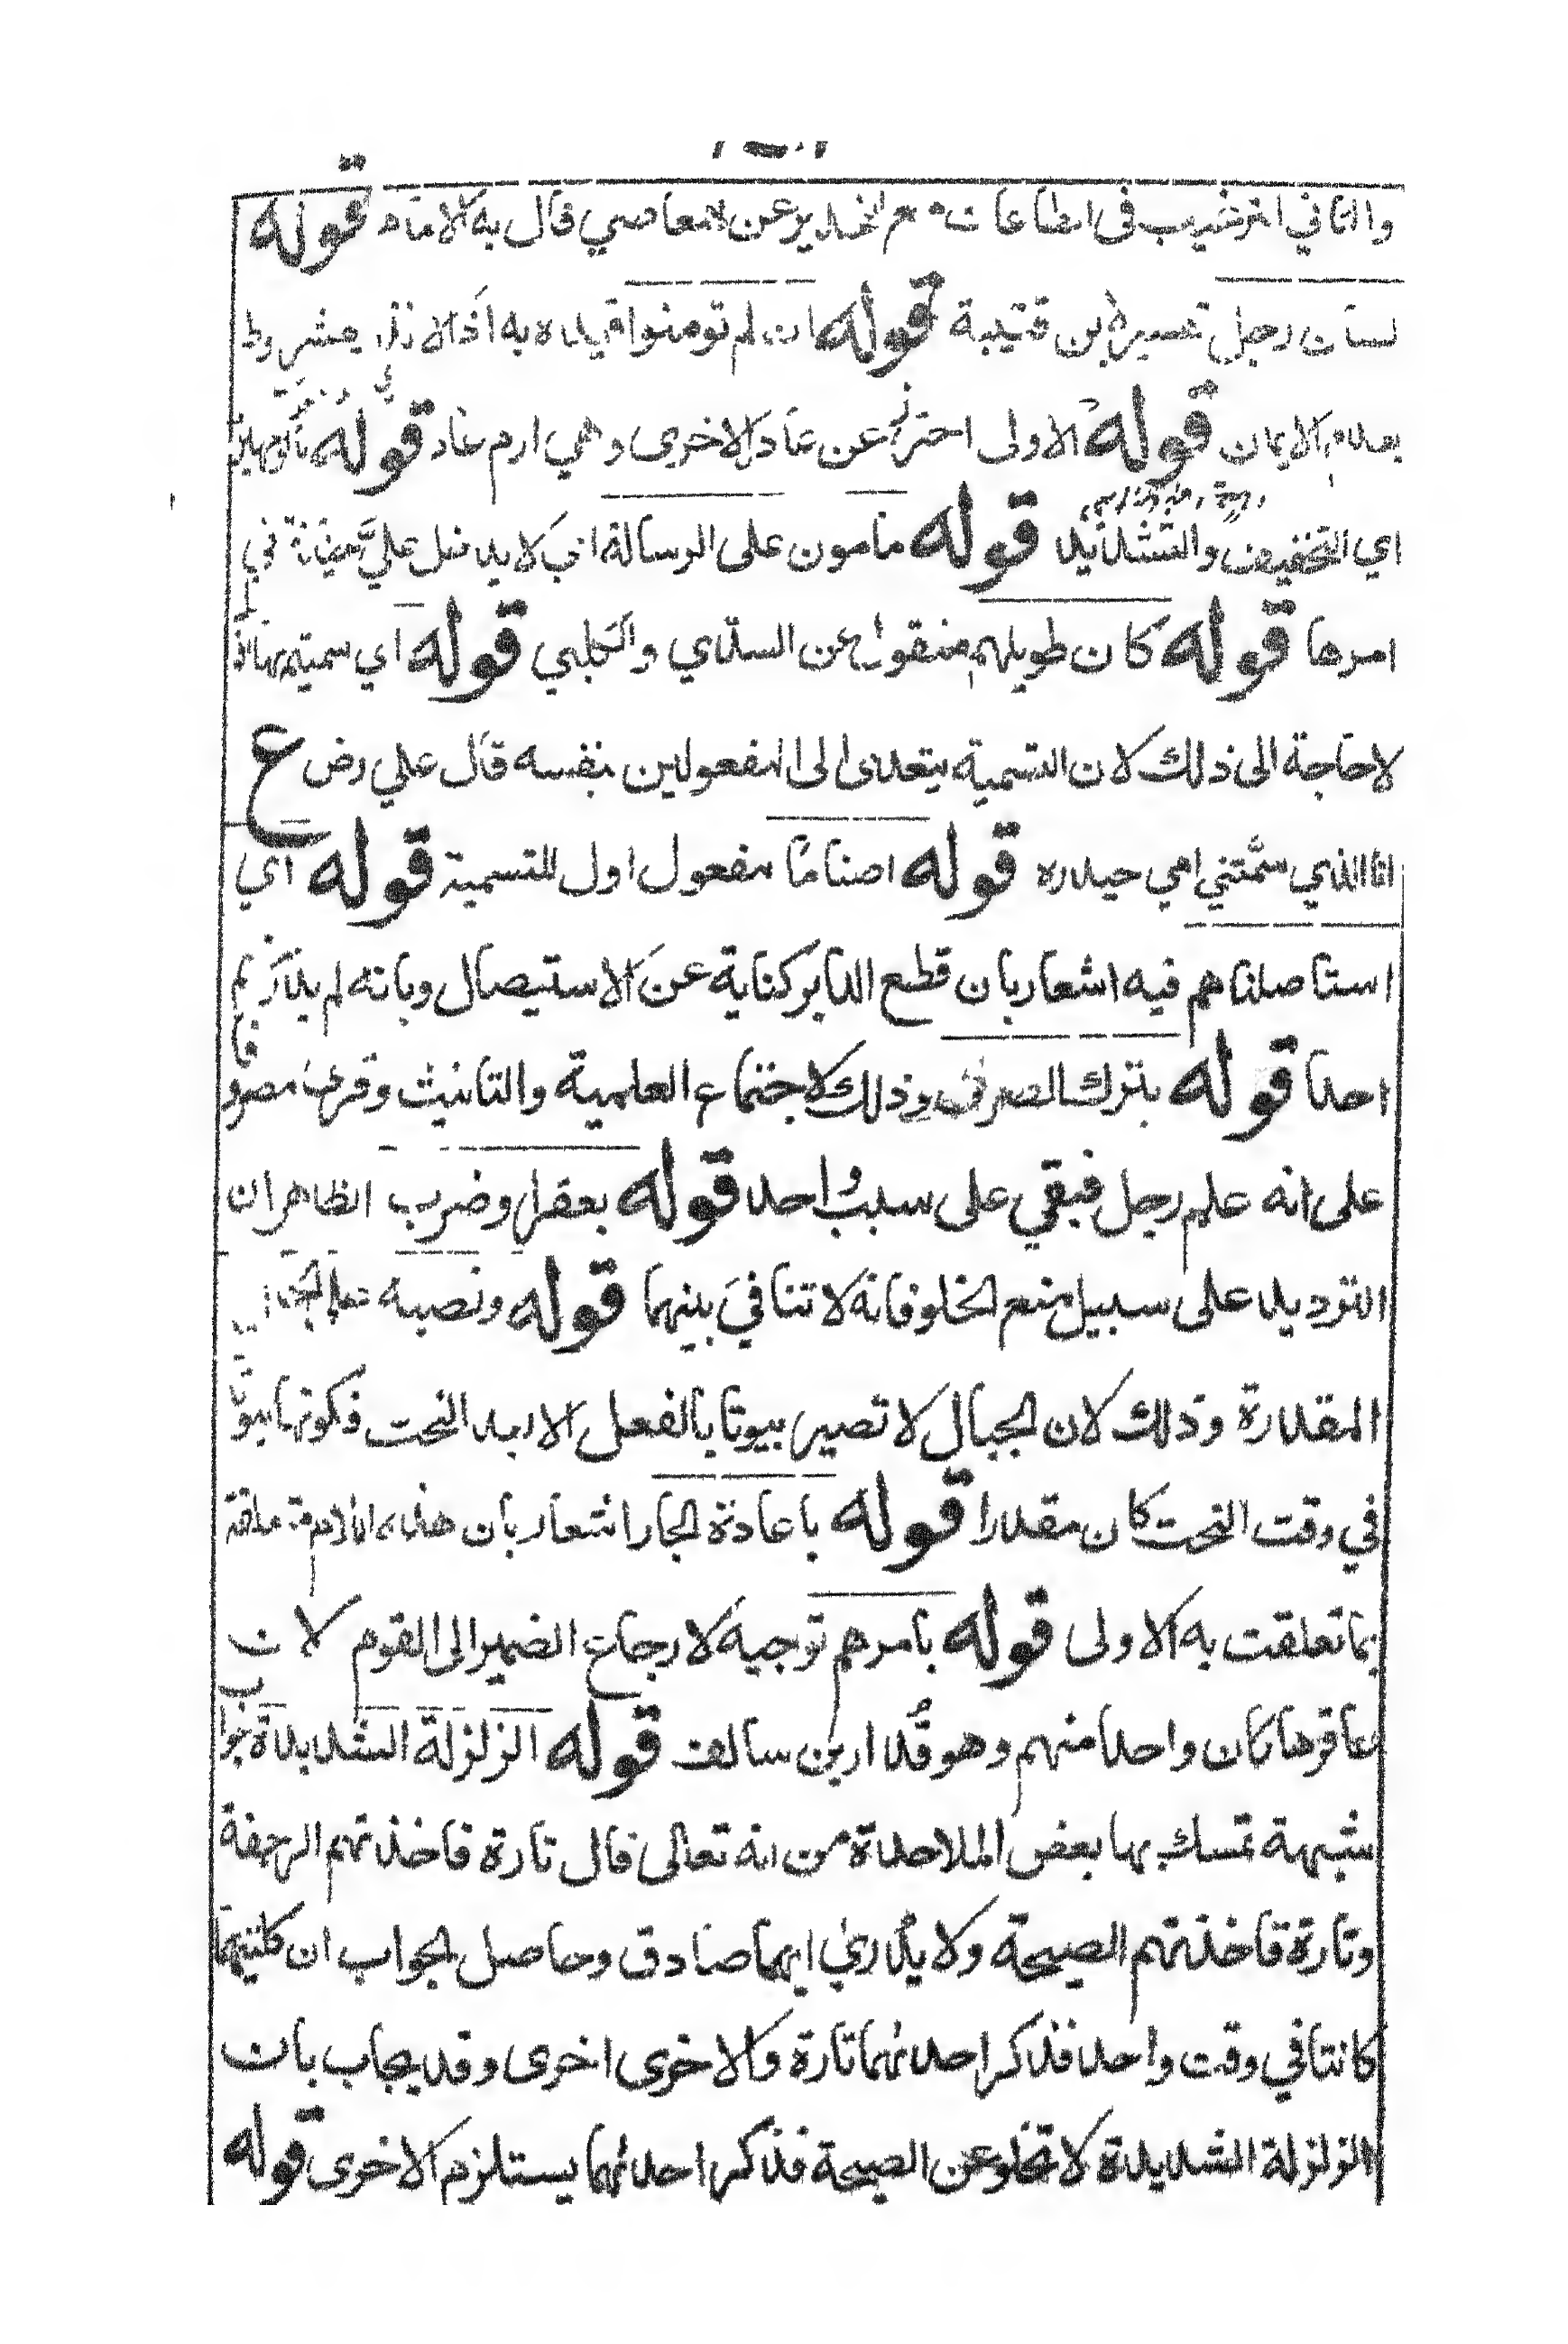 والثاني الترغيب في الطاعات مع التحذير عن المعاصي قال به الامام قوله
لسان رجل تفسيره لابن قتيبة قوله ان لم تومنوا قيده به اذ الانذار مشروط
بعدم الايمان قوله الاولى احتراز عن عاد الاخرى وهي ارم عاد قوله
اي التخفيف والتشديد قوله مامون على الرسالة اي لا يدخل علي خيانة في
امرها قوله كان طويلهم منقول عن السدي والكلبي قوله اي سميتم بها
لا حاجة الى ذلك لان التسمية يتعدى الى المفعولين بنفسه قال علي رض ع
انا الذي سمتني امي حيدره قوله اصناما مفعول اول للتسمية قوله اي
استاصلناهم فيه اشعار بان قطع الدابر كناية عن الاستيصال وبانه لم يذر منهم
احدا قوله بترك الصرف وذلك لاجتماع العلمية والتانيث وقرئ مصروفا
على انه علم رجل فبقي على سبب واحد قوله بعقل وضرب الظاهر ان
الترديد على سبيل منع الخلو فانه لا تنافي بينهما قوله ونصبه على الحال
المقدرة وذلك لان الجبال لا تصير بيوتا بالفعل الا بعد النحت فكونها بيوتا
في وقت النحت كان مقدرا قوله باعادة الجار اشعار بان هذه اللام متعلقة
بما تعلقت به الاولى قوله بامرهم توجيه لارجاع الضمير الى القوم لان
عاقرها كان واحدا منهم وهو قدار بن سالف قوله الزلزلة الشديدة جواب
شبهة تمسك بها بعض الملاحدة من انه تعالى قال تارة فاخذتهم الرجفة
وتارة فاخذتهم الصيحة ولا يدرى ايهما صادق وحاصل الجواب ان كلتيهما
كانتا في وقت واحد فذكر احدٰهما تارة والاخرى اخرى وقد يجاب بان
الزلزلة الشديدة لا تخلو عن الصيحة فذكر احدٰهما يستلزم الاخرى قوله